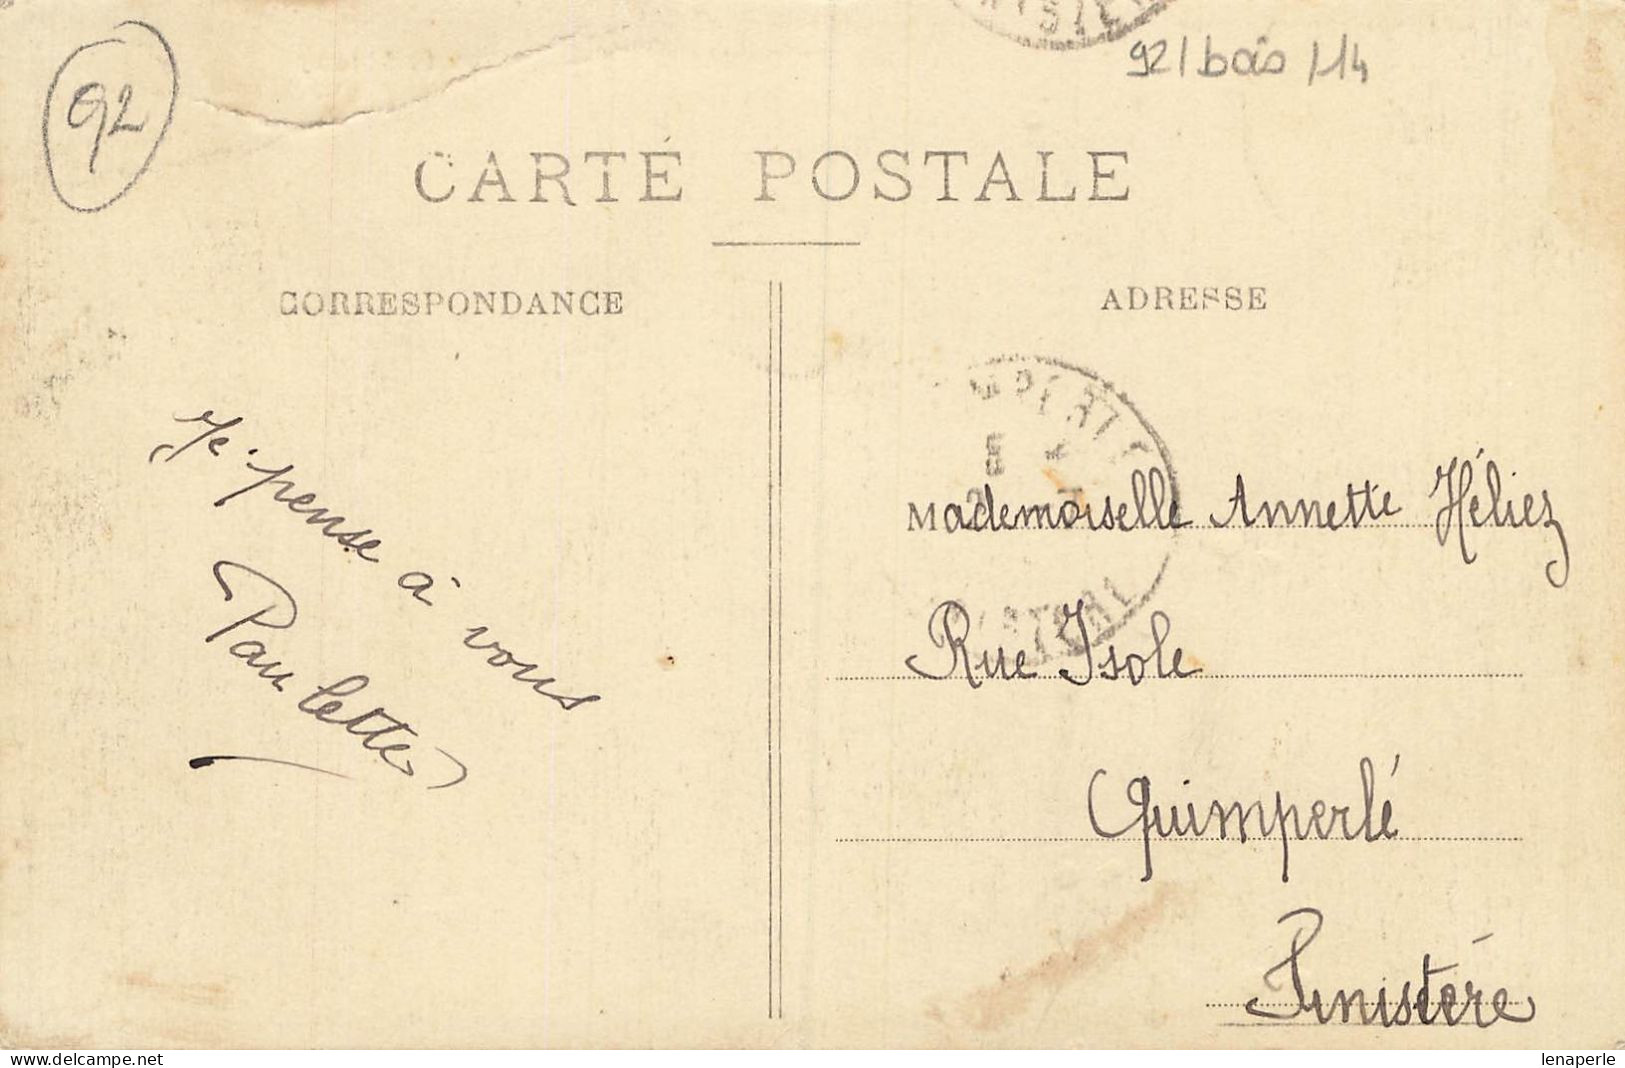 92
92/bois/14
CARTE POSTALE
CORRESPONDANCE
ADRESSE
Je pense à vous
Paulette
Mademoiselle Annette Héliez
Rue Isole
Quimperlé
Finistère
www.delcampe.net
lenaperle